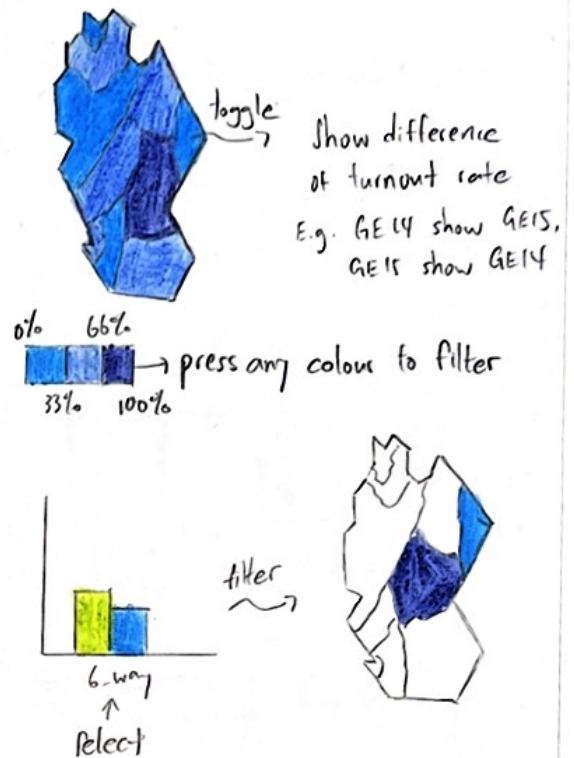 toggle
Show difference
of turnout rate
E.g. GE14 show GE15,
GE15 show GE14
0% 66%
press any colour to filter
33% 100%
filter
6-way
Select